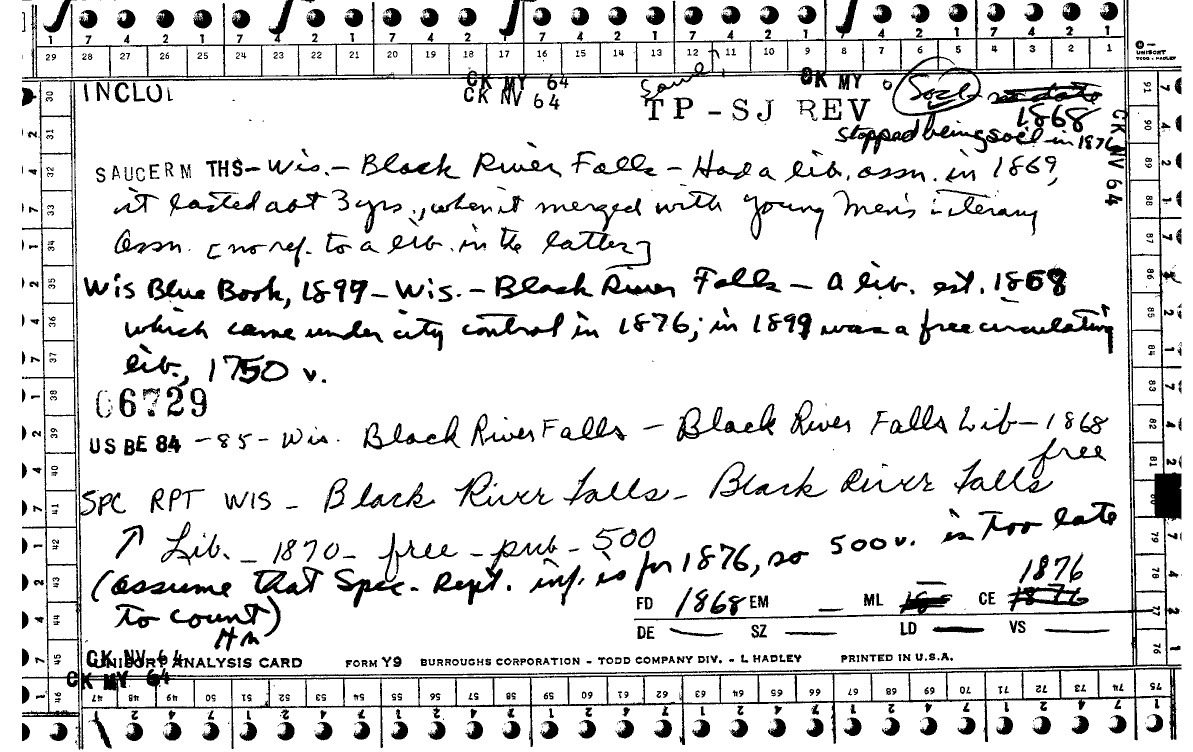 7 4 2 1 7 4 2 1 7 4 2 1 7 4 2 1
29 28 27 26 25 24 23 22 21 20 19 18 17 16 15 14 13 12 11 10 9 8 7 6 5 4 3 2 1
UNISORT
TODD - HADLEY
CK MY 64
CK NV 64
CK MY 6
INCLUI
same
TP-SJ REV
Socl - no date
1868
stopped being socl in 1876
CK NV 64
SAUCERM THS - Wis. - Black River Falls - Had a lib. assn. in 1869,
it lasted abt 3 yrs., when it merged with Young Men's Literary
Assn. [no ref. to a lib. in the latter]
Wis Blue Book, 1899 - Wis. - Black River Falls - A lib. est. 1868
which came under city control in 1876; in 1899 was a free circulating
lib., 1750 v.
06729
US BE 84 - 85 - Wis. Black River Falls - Black River Falls Lib - 1868
free
SPC RPT WIS - Black River Falls - Black River Falls
↑ Lib. - 1870 - free - pub - 500
(assume that Spec. Rept. inf. is for 1876, so 500 v. is too late
to count)
Hm
1876
FD 1868 EM — ML — CE 1876
DE — SZ — LD — VS —
CK NV 64
UNISORT ANALYSIS CARD FORM Y9 BURROUGHS CORPORATION - TODD COMPANY DIV. - L HADLEY PRINTED IN U.S.A.
CK MY 64
47 48 49 50 51 52 53 54 55 56 57 58 59 60 61 62 63 64 65 66 67 68 69 70 71 72 73 74 75